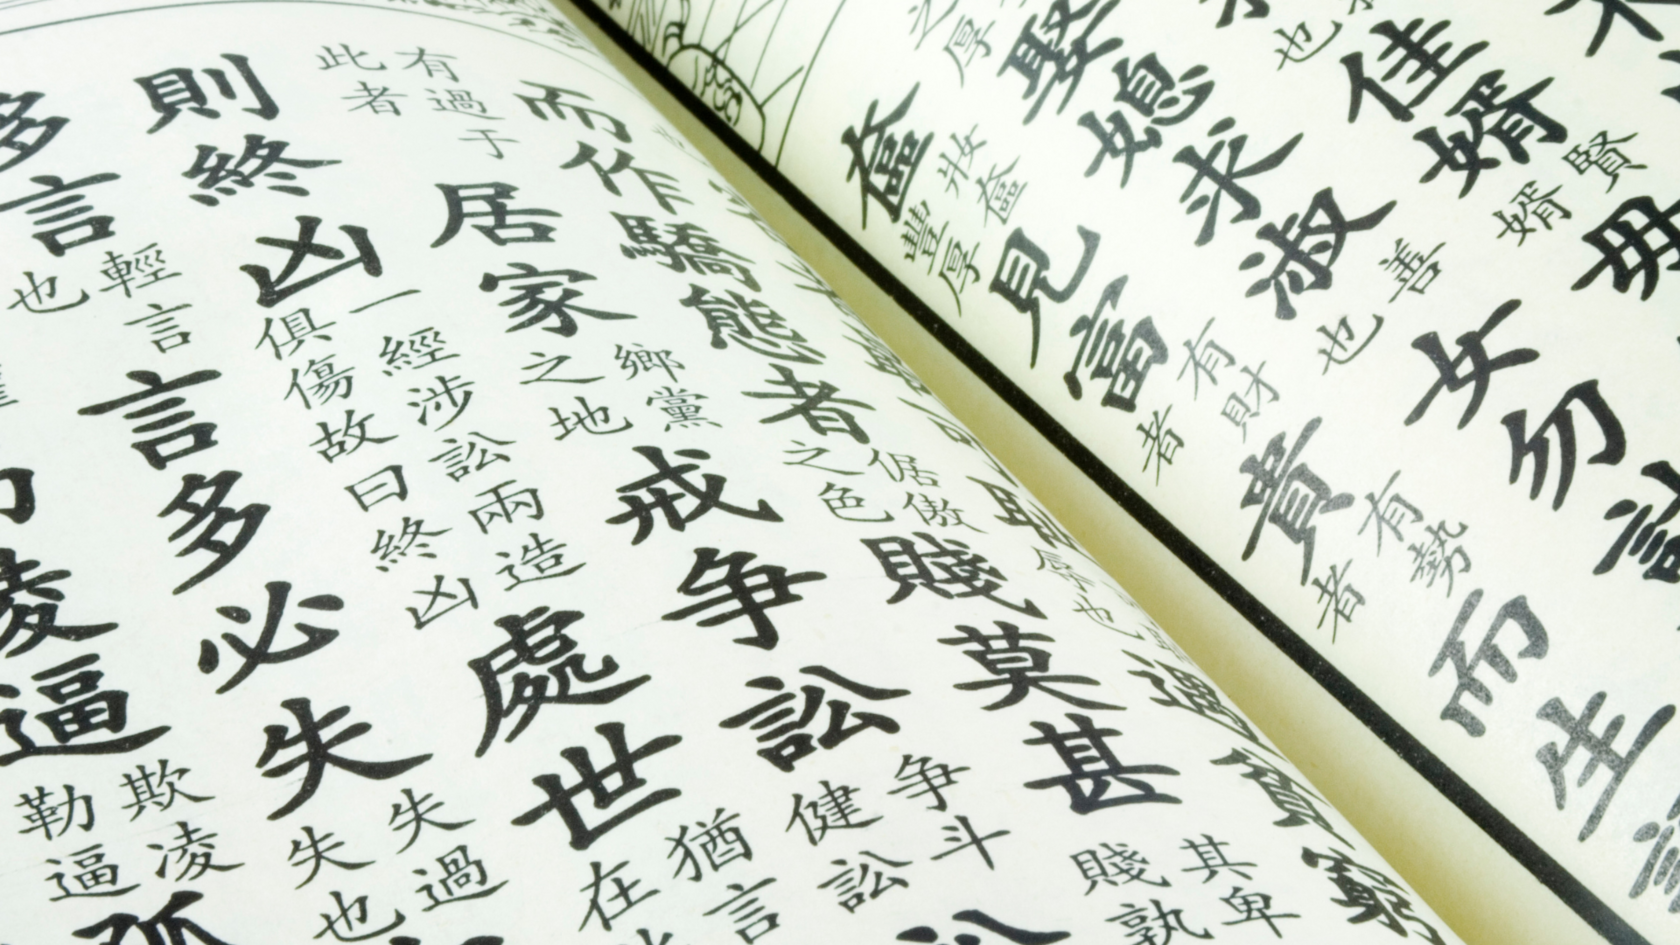 佳婿賢婿毋
娶媳求淑善也女勿計
奩妝奩豐厚見富有財者貴有勢者而生
辱也遇貧窮
而作驕態者倨傲之色賤莫甚其卑賤孰
有過于此者居家鄉黨之地戒争訟争斗健訟訟
則終凶一經涉訟兩造俱傷故曰終凶處世猶言在
多言輕言也言多必失失過失也
凌逼欺凌勒逼孤